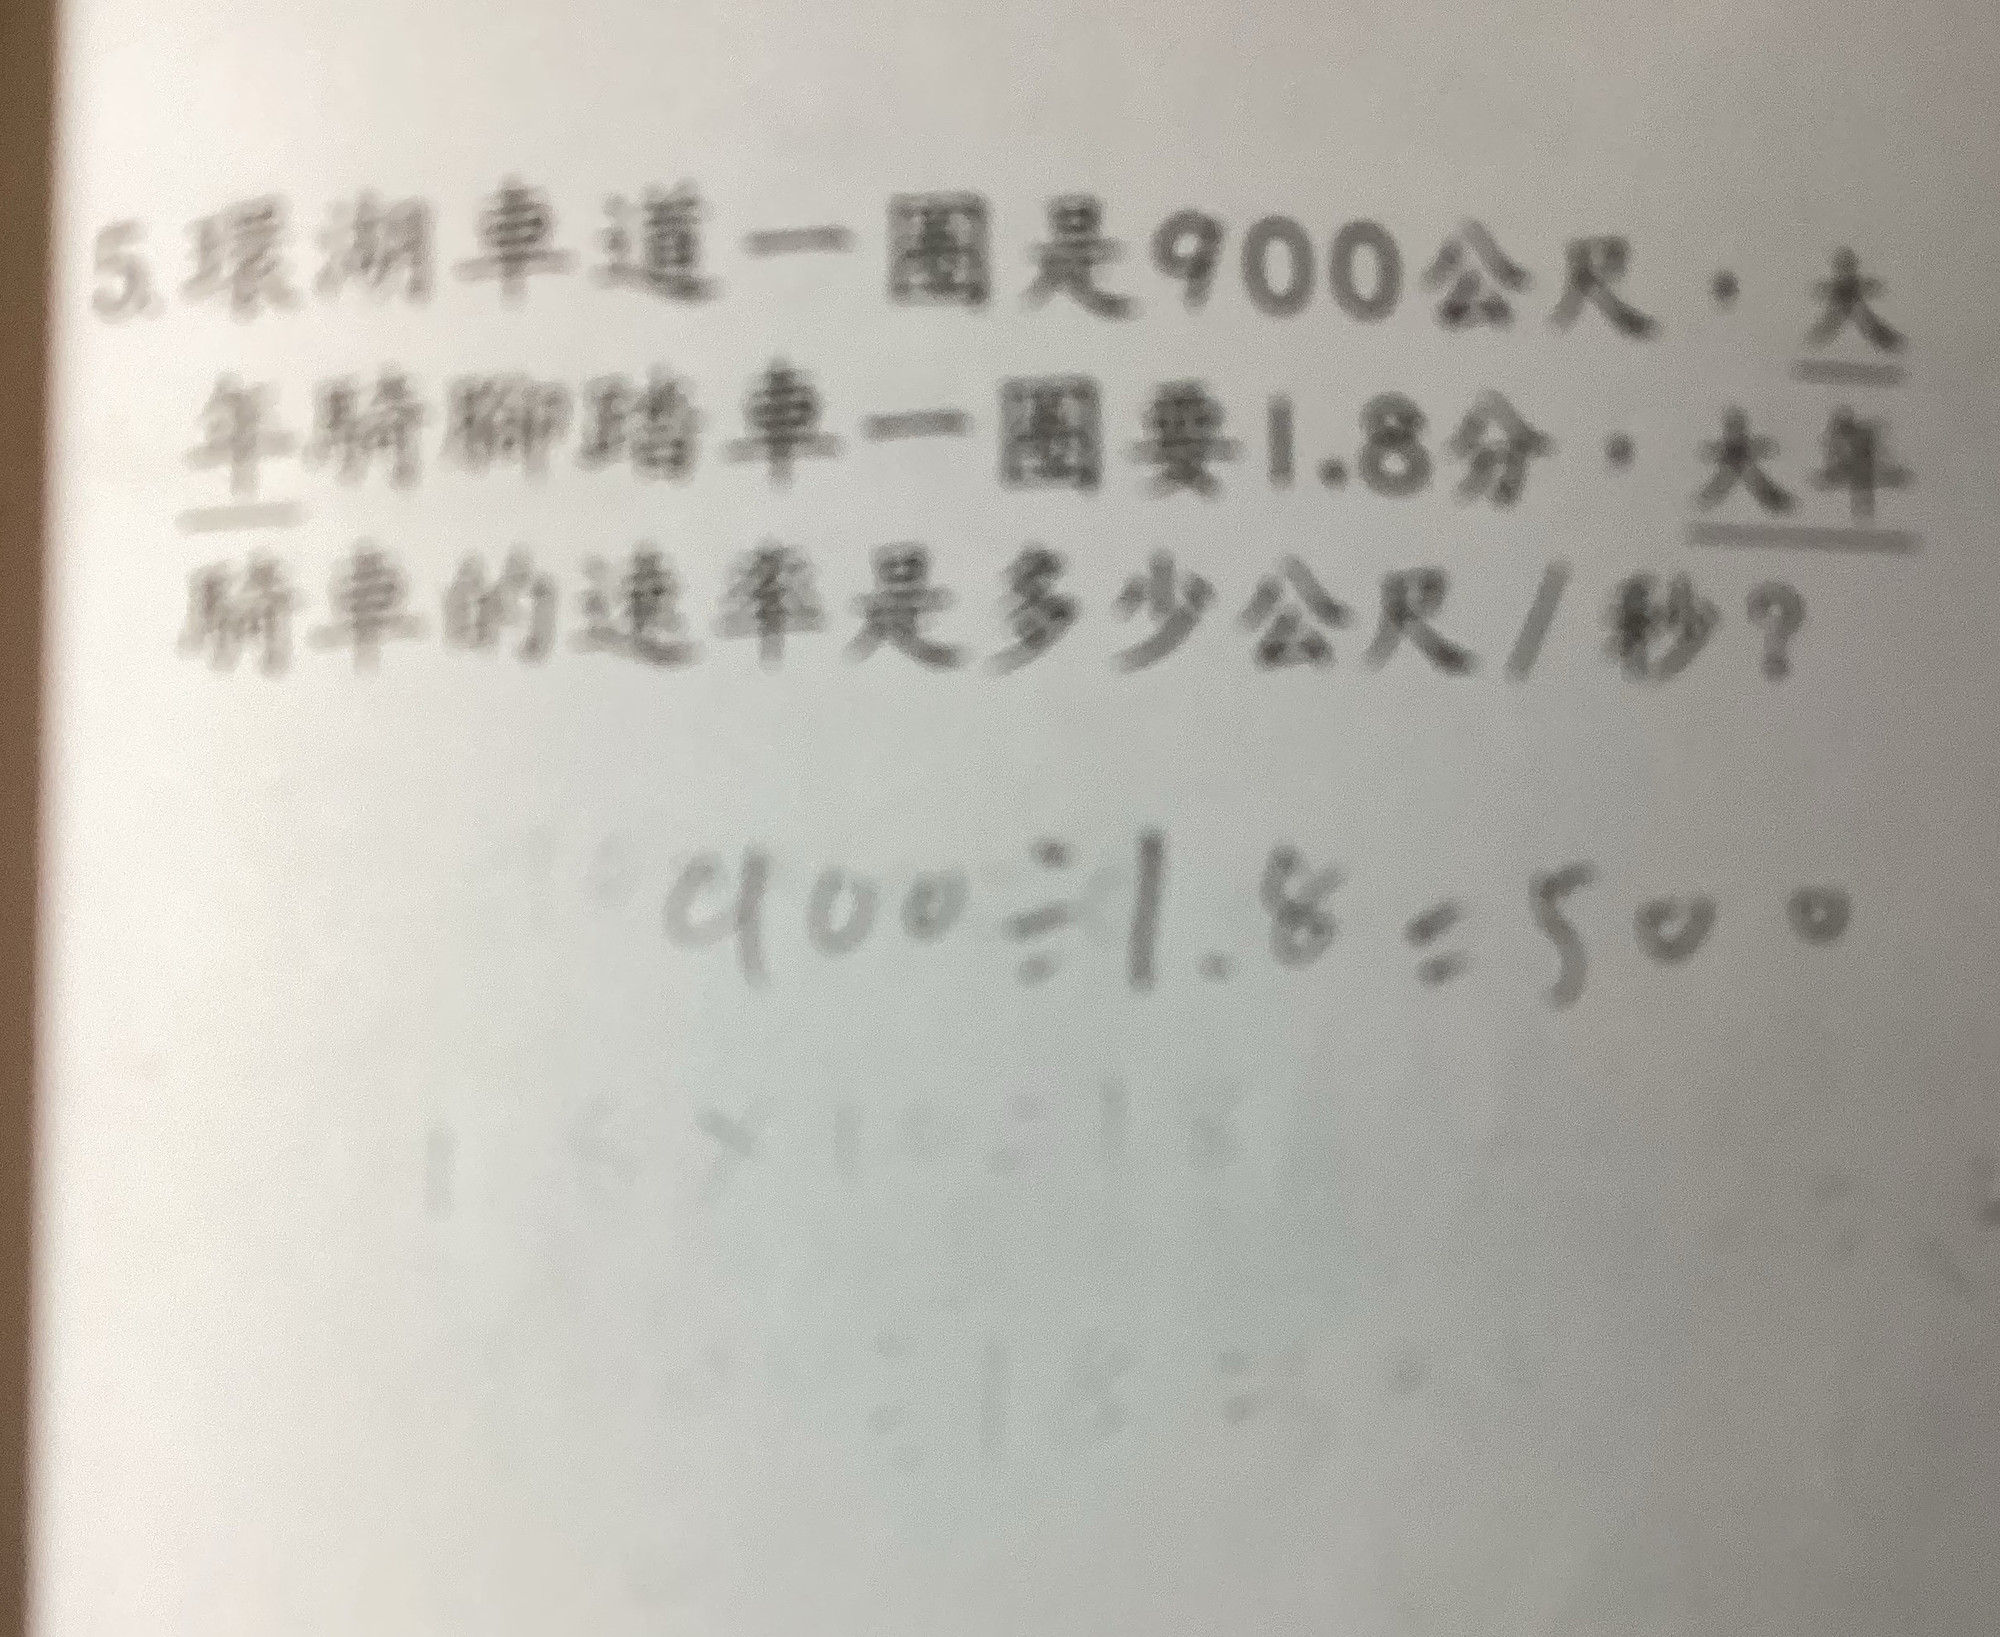 5.環湖車道一圈是900公尺，大
年騎腳踏車一圈要1.8分，大年
騎車的速率是多少公尺/秒？
900÷1.8=500